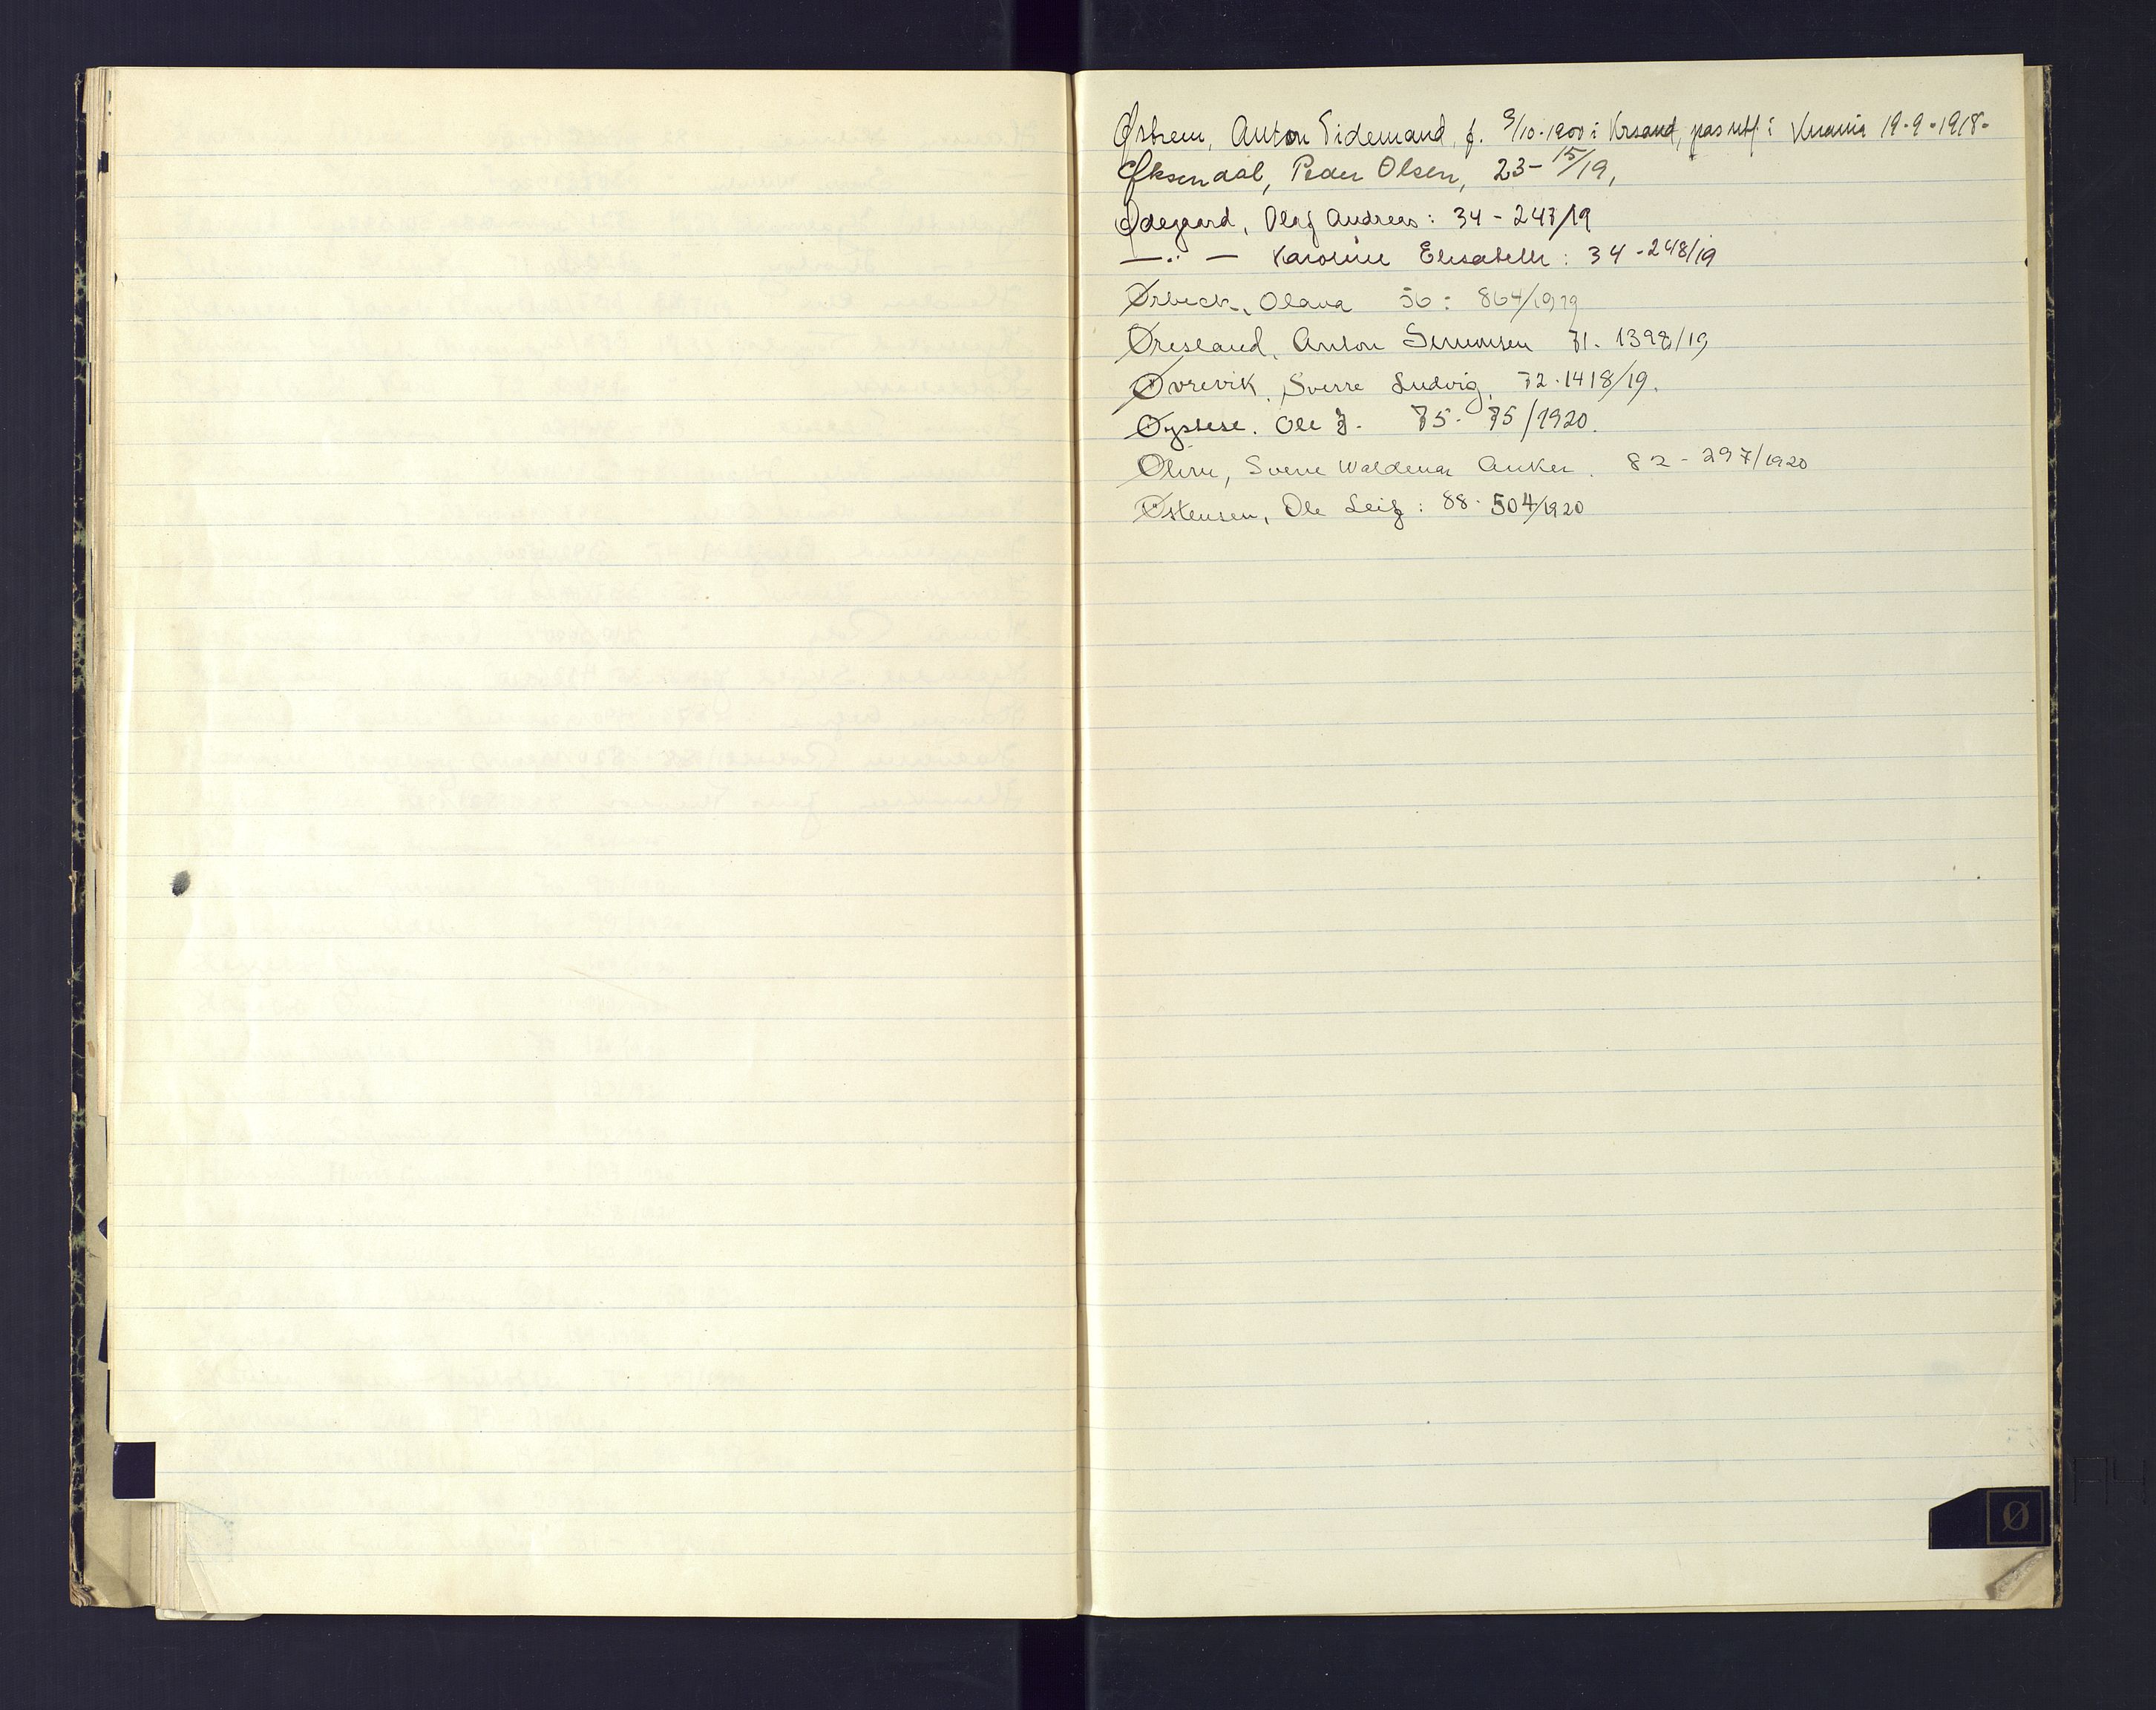 Østrem, Anton Tidemand, f. 9/10-1900 i Krsand, pas utf. i Knania 19-9-1918-
Øksendal, Peder Olsen, 23- 15/19,
Ødegaard, Olaf Andreas: 34 - 247/19
—„— Karoline Elisabeth: 34 - 248/19
Ørbeck, Olava 56: 864/1919
Øresland, Anton Simonsen 71. 1398/19
Øvrevik, Sverre Ludvig, 72.1418/19.
Øystese. Ole J. 75- 75/1920.
Øhrn, Sverre Waldemar Anker. 82 - 297/1920
Østensen, Ole Leif: 88- 504/1920
Ø